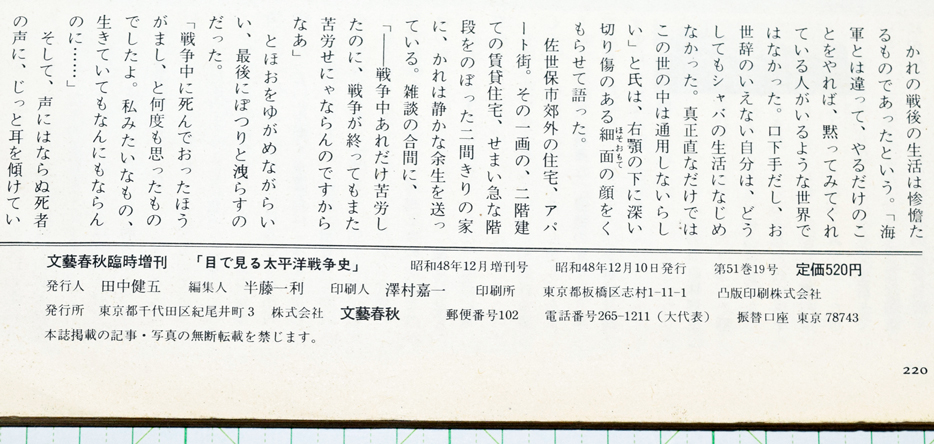 かれの戦後の生活は惨憺た
るものであったという。「海
軍とは違って、やるだけのこ
とをやれば、黙ってみてくれ
ている人がいるような世界で
はなかった。口下手だし、お
世辞のいえない自分は、どう
してもシャバの生活になじめ
なかった。真正直なだけでは
この世の中は通用しないらし
い」と氏は、右顎の下に深い
ほそおもて
切り傷のある細面の顔をく
もらせて語った。
佐世保市郊外の住宅、アパ
ート街。その一画の、二階建
ての賃貸住宅、せまい急な階
段をのぼった二間きりの家
に、かれは静かな余生を送っ
ている。雑談の合間に、
「――戦争中あれだけ苦労し
たのに、戦争が終ってもまた
苦労せにゃならんのですから
なあ」
とほおをゆがめながらい
い、最後にぽつりと洩らすの
だった。
「戦争中に死んでおったほう
がまし、と何度も思ったもの
でしたよ。私みたいなもの、
生きていてもなんにもならん
のに……」
そして、声にはならぬ死者
の声に、じっと耳を傾けてい
文藝春秋臨時増刊 「目で見る太平洋戦争史」 昭和48年12月増刊号 昭和48年12月10日発行 第51巻19号 定価520円
発行人 田中健五 編集人 半藤一利 印刷人 澤村嘉一 印刷所 東京都板橋区志村1-11-1 凸版印刷株式会社
発行所 東京都千代田区紀尾井町3 株式会社 文藝春秋 郵便番号102 電話番号265-1211（大代表） 振替口座 東京 78743
本誌掲載の記事・写真の無断転載を禁じます。
220